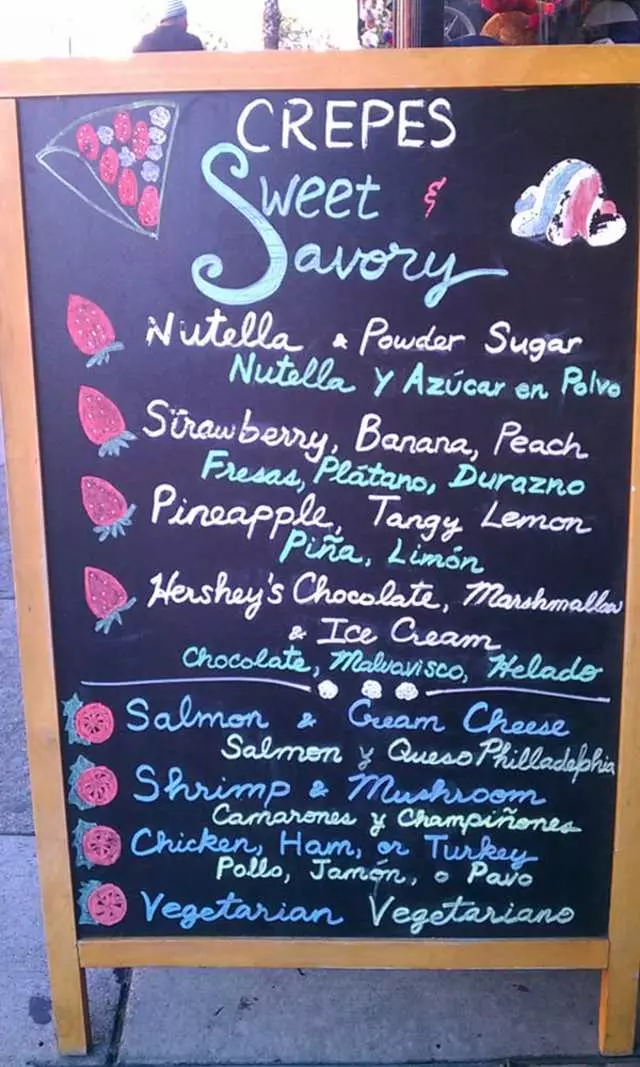 CREPES
Sweet &
Savory
Nutella & Powder Sugar
Nutella y Azúcar en Polvo
Strawberry, Banana, Peach
Fresas, Plátano, Durazno
Pineapple, Tangy Lemon
Piña, Limón
Hershey's Chocolate, Marshmallow
& Ice Cream
Chocolate, Malvavisco, Helado
Salmon & Cream Cheese
Salmon y Queso Philladelphia
Shrimp & Mushroom
Camarones y Champiñones
Chicken, Ham, or Turkey
Pollo, Jamón, o Pavo
Vegetarian Vegetariano